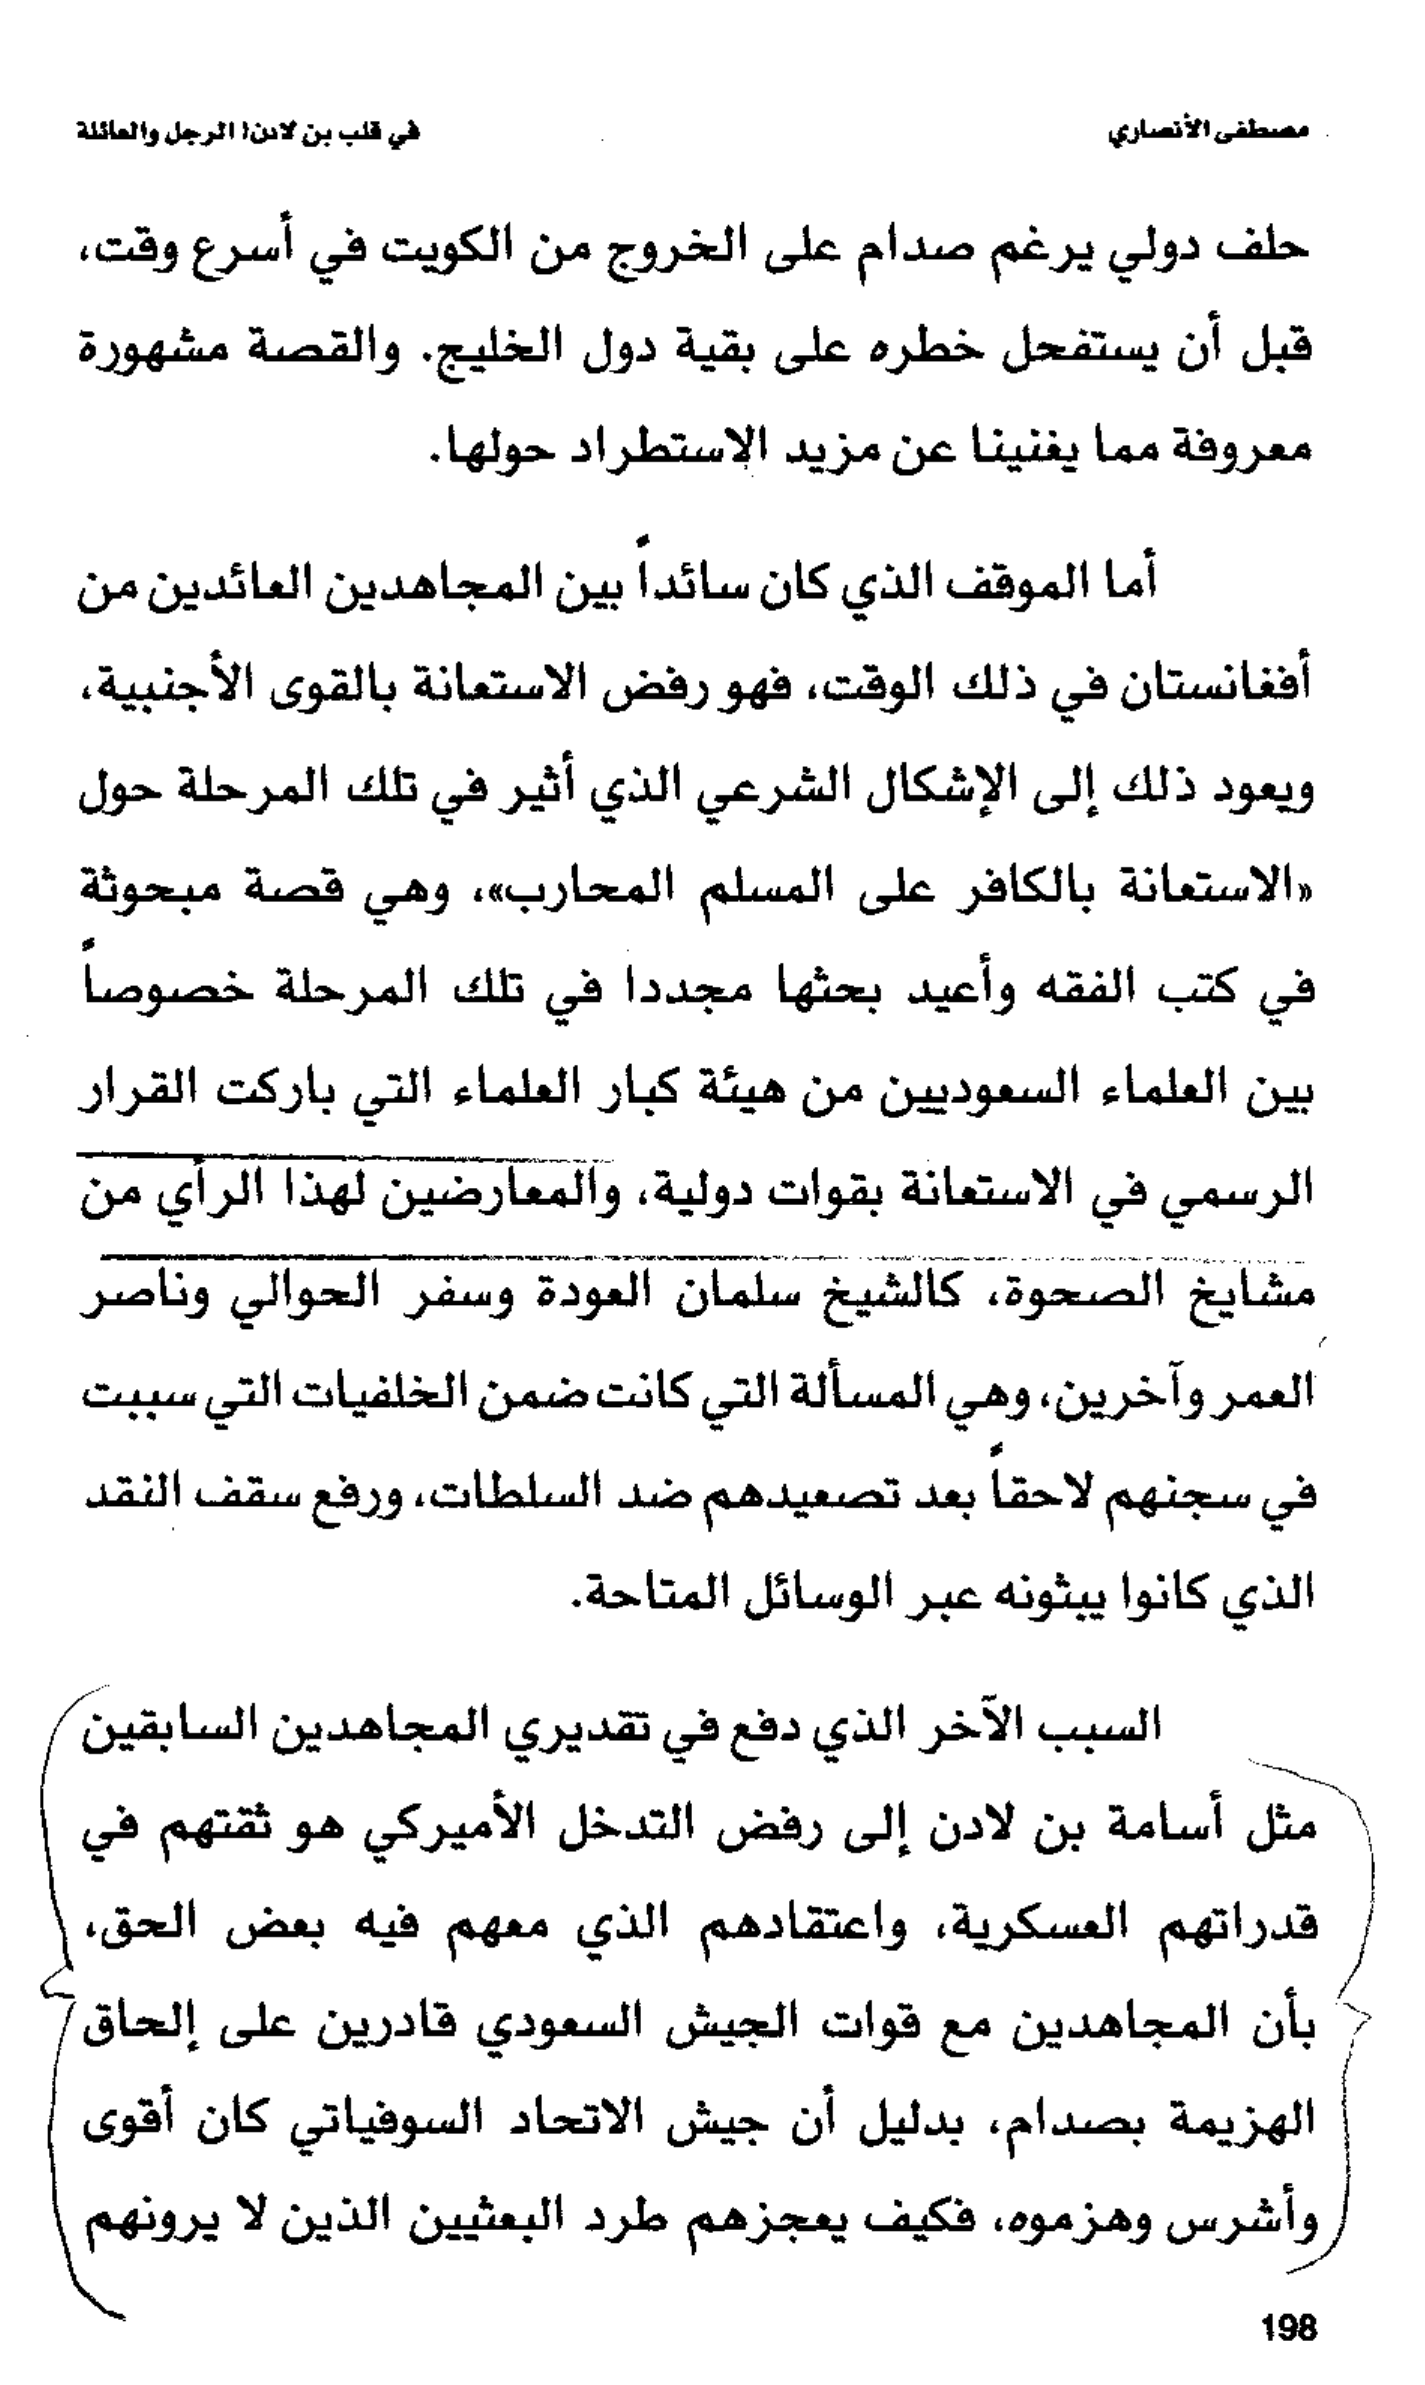 مصطفى الأنصاري
في قلب بن لادن! الرجل والعائلة
حلف دولي يرغم صدام على الخروج من الكويت في أسرع وقت،
قبل أن يستفحل خطره على بقية دول الخليج. والقصة مشهورة
معروفة مما يغنينا عن مزيد الاستطراد حولها.
أما الموقف الذي كان سائداً بين المجاهدين العائدين من
أفغانستان في ذلك الوقت، فهو رفض الاستعانة بالقوى الأجنبية،
ويعود ذلك إلى الإشكال الشرعي الذي أثير في تلك المرحلة حول
«الاستعانة بالكافر على المسلم المحارب»، وهي قصة مبحوثة
في كتب الفقه وأعيد بحثها مجددا في تلك المرحلة خصوصاً
بين العلماء السعوديين من هيئة كبار العلماء التي باركت القرار
الرسمي في الاستعانة بقوات دولية، والمعارضين لهذا الرأي من
مشايخ الصحوة، كالشيخ سلمان العودة وسفر الحوالي وناصر
العمر وآخرين، وهي المسألة التي كانت ضمن الخلفيات التي سببت
في سجنهم لاحقاً بعد تصعيدهم ضد السلطات، ورفع سقف النقد
الذي كانوا يبثونه عبر الوسائل المتاحة.
السبب الآخر الذي دفع في تقديري المجاهدين السابقين
مثل أسامة بن لادن إلى رفض التدخل الأميركي هو ثقتهم في
قدراتهم العسكرية، واعتقادهم الذي معهم فيه بعض الحق،
بأن المجاهدين مع قوات الجيش السعودي قادرين على إلحاق
الهزيمة بصدام، بدليل أن جيش الاتحاد السوفياتي كان أقوى
وأشرس وهزموه، فكيف يعجزهم طرد البعثيين الذين لا يرونهم
198